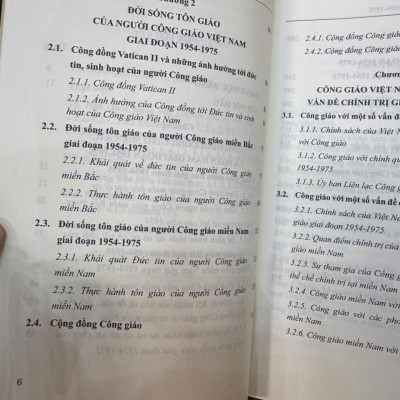 Chương 2
ĐỜI SỐNG TÔN GIÁO
CỦA NGƯỜI CÔNG GIÁO VIỆT NAM
GIAI ĐOẠN 1954-1975
2.1. Công đồng Vatican II và những ảnh hưởng tới đức
tin, sinh hoạt của người Công giáo
2.1.1. Công đồng Vatican II
2.1.2. Ảnh hưởng của Công đồng tới Đức tin và sinh
hoạt của Công giáo Việt Nam
2.2. Đời sống tôn giáo của người Công giáo miền Bắc
giai đoạn 1954-1975
2.2.1. Khái quát về đức tin của người Công giáo
miền Bắc
2.2.2. Thực hành tôn giáo của người Công giáo
miền Bắc
2.3. Đời sống tôn giáo của người Công giáo miền Nam
giai đoạn 1954-1975
2.3.1. Khái quát Đức tin của người Công giáo
miền Nam
2.3.2. Thực hành tôn giáo của người Công giáo
miền Nam
2.4. Cộng đồng Công giáo
6
2.4.1. Cộng đồng Công giáo
2.4.2. Cộng đồng Công giáo
Chương
CÔNG GIÁO VIỆT N
VẤN ĐỀ CHÍNH TRỊ G
3.1. Công giáo với một số vấn đề
3.1.1. Chính sách của Việt Nam
với Công giáo
3.1.2. Công giáo với chính quyền
1954-1975
3.1.3. Ủy ban Liên lạc Công giáo
3.2. Công giáo với một số vấn đề
3.2.1. Chính sách của Việt Nam
giáo giai đoạn 1954-1975
3.2.2. Quan điểm chính trị của
miền Nam
3.2.3. Sự tham gia của Công giáo
thể chế chính trị tại miền Nam
3.2.4. Công giáo miền Nam với
3.2.5. Công giáo với các pho
miền Nam
3.2.6. Công giáo miền Nam với